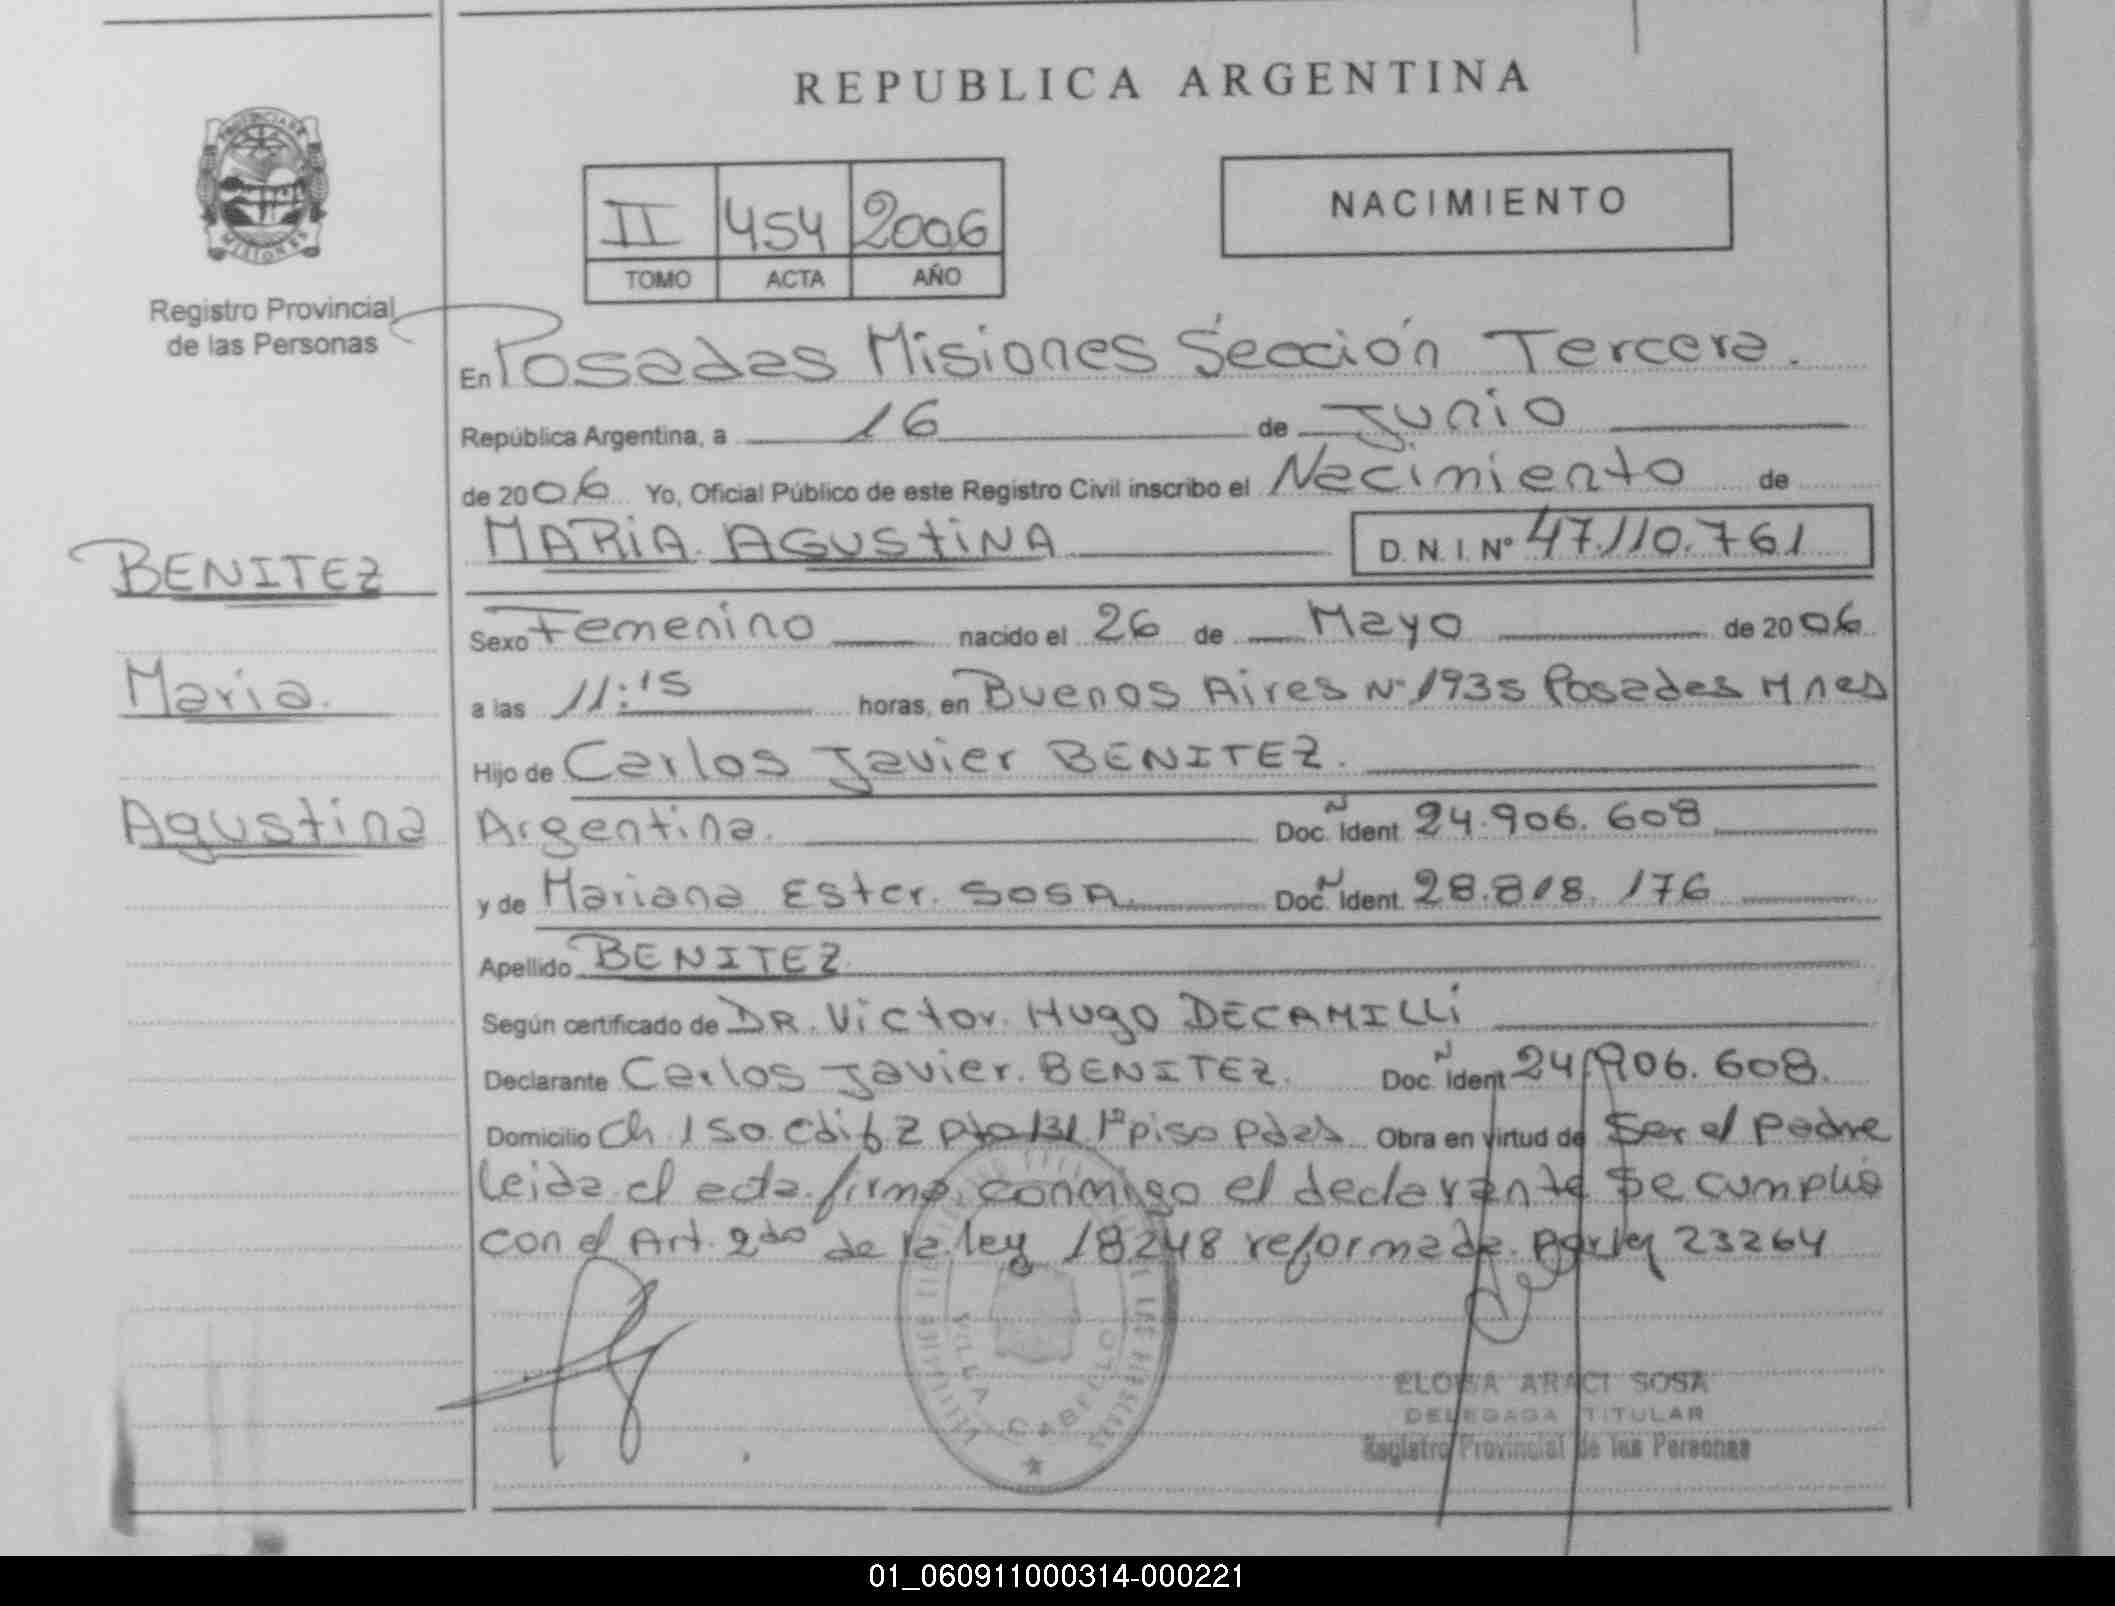 REPUBLICA ARGENTINA
PROVINCIA DE MISIONES
Registro Provincial
de las Personas
II 454 2006
TOMO ACTA AÑO
NACIMIENTO
En Posadas Misiones Sección Tercera.
República Argentina, a 16 de Junio
de 2006 Yo, Oficial Público de este Registro Civil inscribo el Nacimiento de
MARIA AGUSTINA D.N.I. Nº 47.110.761
BENITEZ
Maria.
Agustina
Sexo Femenino nacido el 26 de Mayo de 2006
a las 11:15 horas, en Buenos Aires Nº 1935 Posadas Mnes
Hijo de Carlos Javier BENITEZ.
Argentina. Doc. Ident. 24.906.608
y de Mariana Ester. SOSA. Doc. Ident. 28.818.176
Apellido BENITEZ
Según certificado de DR. Victor Hugo DECAMILLI
Declarante Carlos Javier. BENITEZ. Doc. Ident 24.906.608.
Domicilio Ch 150 edif 2 pto 131 1º piso Pdas Obra en virtud de Ser el padre
Leida el acta firma conmigo el declarante Se cumplió
con el Art. 2do de la ley 18.248 reformada por ley 23264
VILLA CABELLO
ELOISA ARACI SOSA
DELEGADA TITULAR
Registro Provincial de las Personas
01_060911000314-000221